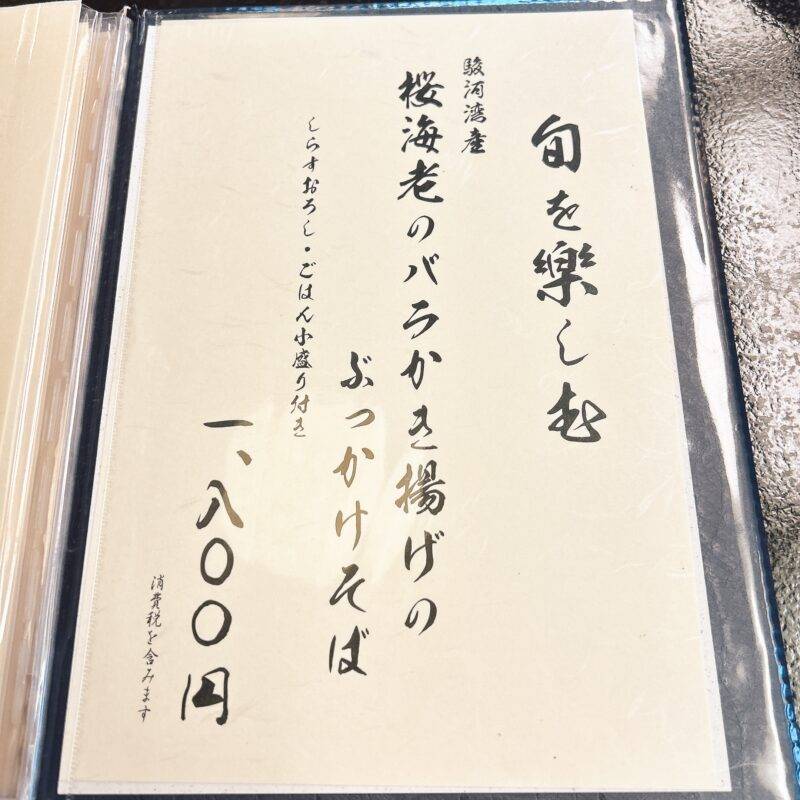 旬を樂しむ
駿河湾産
桜海老のバラかき揚げの
ぶっかけそば
しらすおろし・ごはん小盛り付き
一、八〇〇円
消費税を含みます